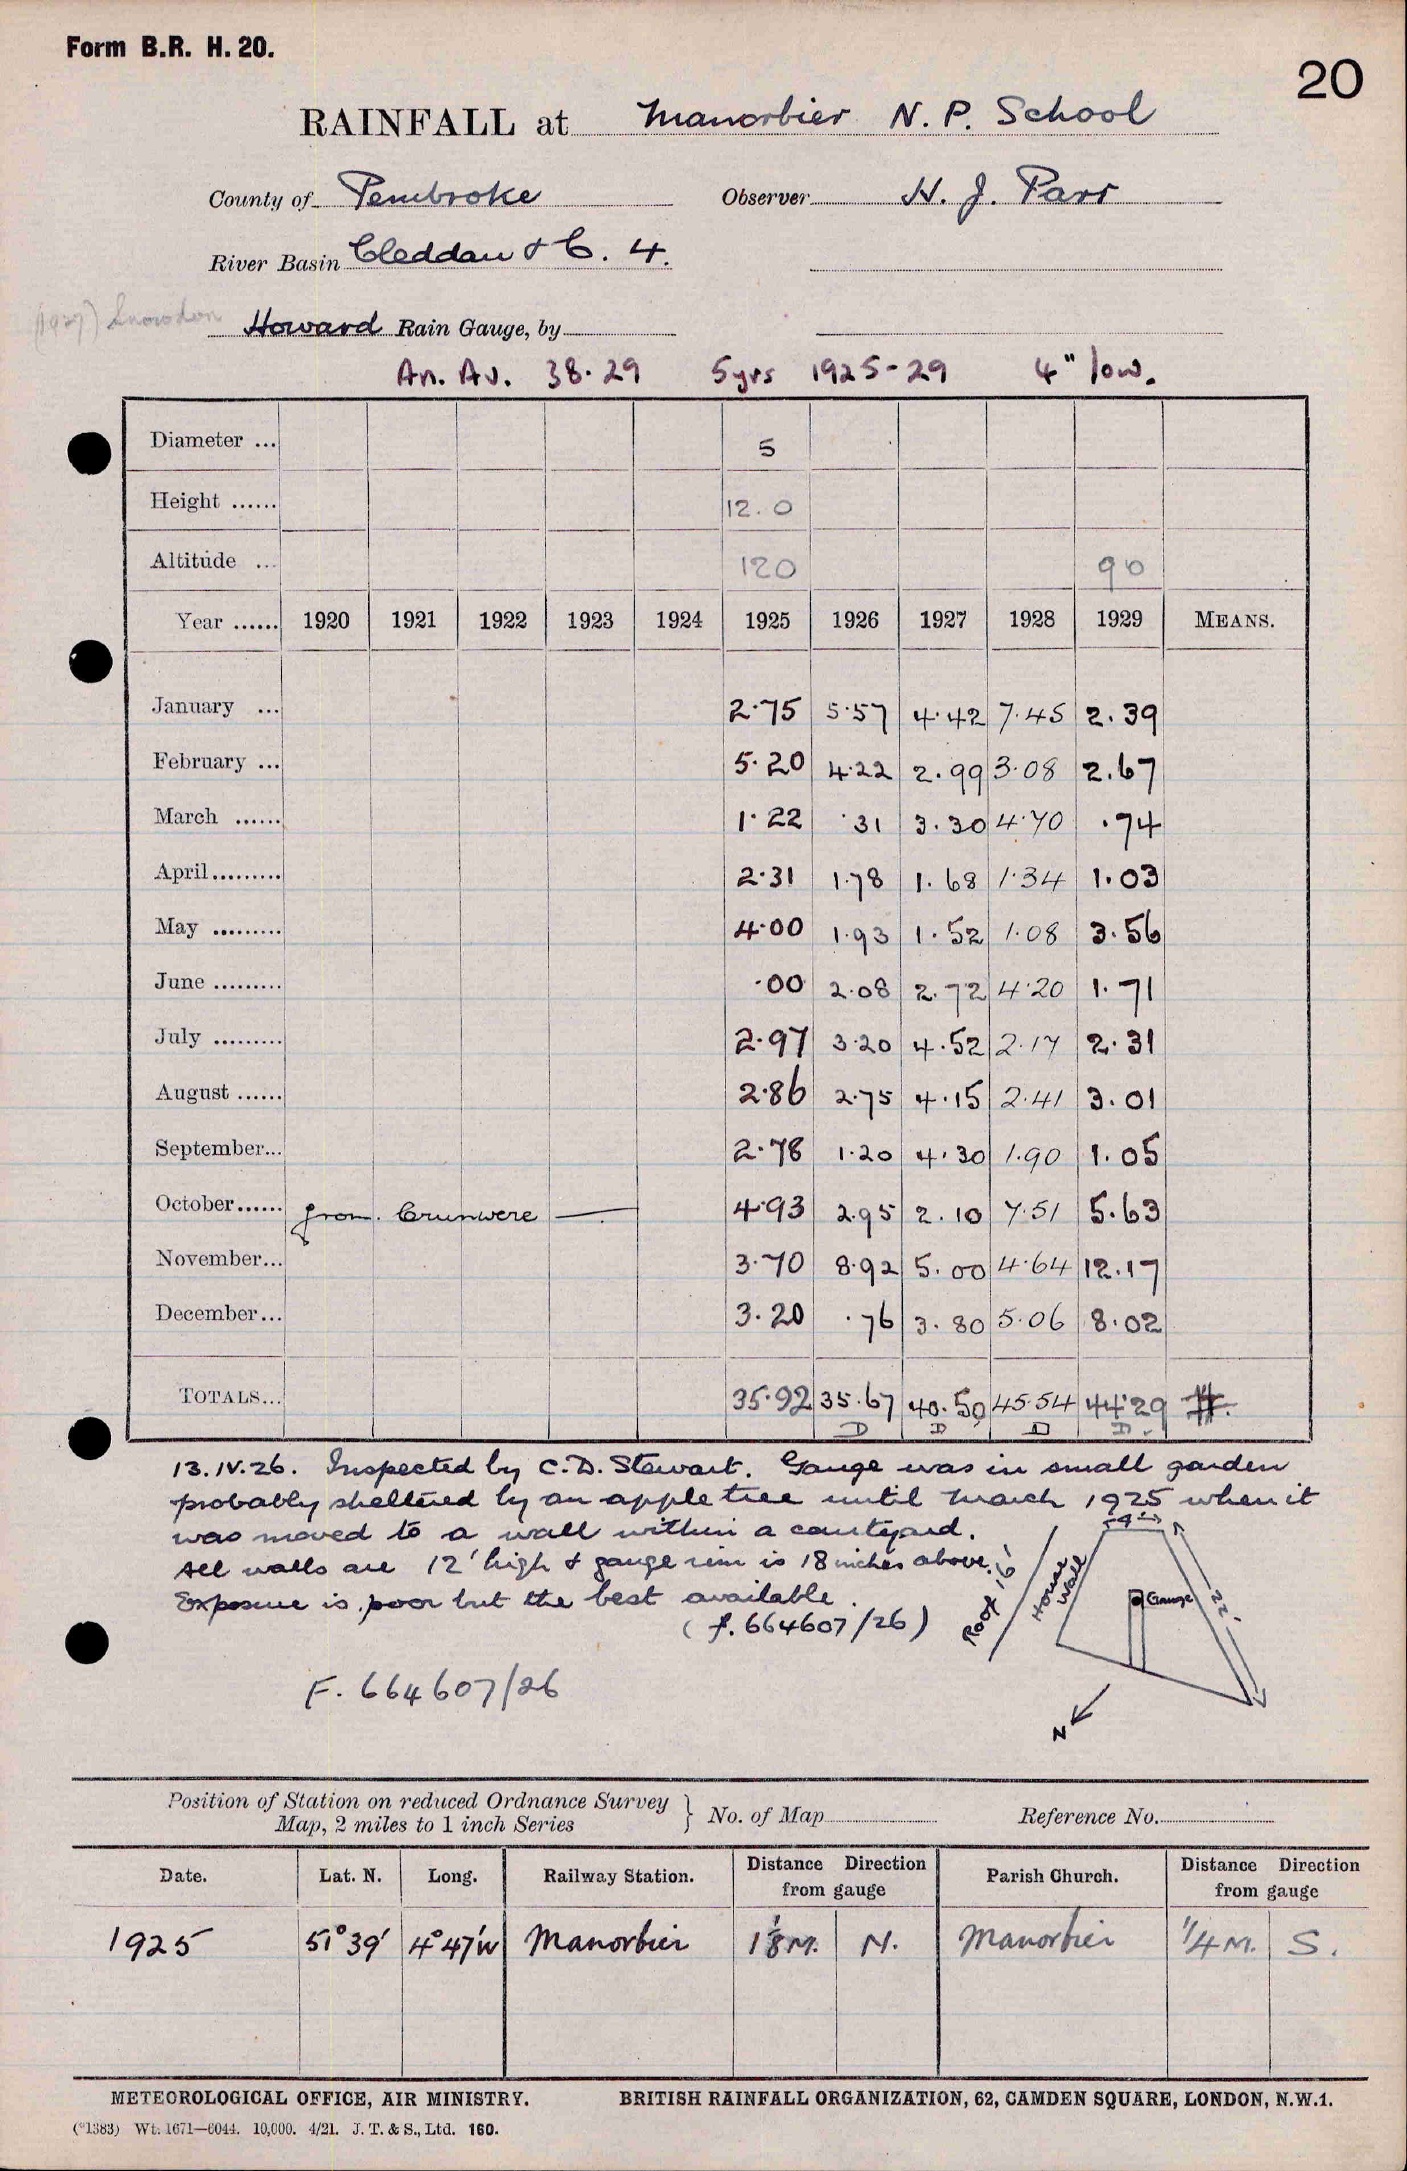 Form B.R. H. 20.
20
RAINFALL at Manorbier N. P. School
County of Pembroke Observer H. J. Parr
River Basin Cleddau & C. 4.
(1927) Snowdon Howard Rain Gauge, by
An. Av. 38.29 5yrs 1925-29 4" low.
Diameter ... 5
Height ...... 12.0
Altitude ... 120 90
Year ...... 1920 1921 1922 1923 1924 1925 1926 1927 1928 1929 MEANS.
January ... 2.75 5.57 4.42 7.45 2.39
February ... 5.20 4.22 2.99 3.08 2.67
March ...... 1.22 .31 3.30 4.70 .74
April......... 2.31 1.78 1.68 1.34 1.03
May ......... 4.00 1.93 1.52 1.08 3.56
June ......... .00 2.08 2.72 4.20 1.71
July ......... 2.97 3.20 4.52 2.17 2.31
August ...... 2.86 2.75 4.15 2.41 3.01
September... 2.78 1.20 4.30 1.90 1.05
October...... from Crunwere 4.93 2.95 2.10 7.51 5.63
November... 3.70 8.92 5.00 4.64 12.17
December... 3.20 .76 3.80 5.06 8.02
TOTALS... 35.92 35.67 40.50 45.54 44.29
D D D D
13.IV.26. Inspected by C.D. Stewart. Gauge was in small garden
probably sheltered by an apple tree until March 1925 when it
was moved to a wall within a courtyard.
All walls are 12' high & gauge rim is 18 inches above.
Exposure is poor but the best available.
(f. 664607/26)
4'
Roof 16'
House Wall
Gauge
22'
N
F. 664607/26
Position of Station on reduced Ordnance Survey
Map, 2 miles to 1 inch Series } No. of Map Reference No.
Date. Lat. N. Long. Railway Station. Distance from gauge Direction Parish Church. Distance from gauge Direction
1925 51°39' 4°47'W Manorbier 1 1/8 M. N. Manorbier 1/4 M. S.
METEOROLOGICAL OFFICE, AIR MINISTRY. BRITISH RAINFALL ORGANIZATION, 62, CAMDEN SQUARE, LONDON, N.W.1.
(*1383) Wt. 1671—6044. 10,000. 4/21. J. T. & S., Ltd. 160.